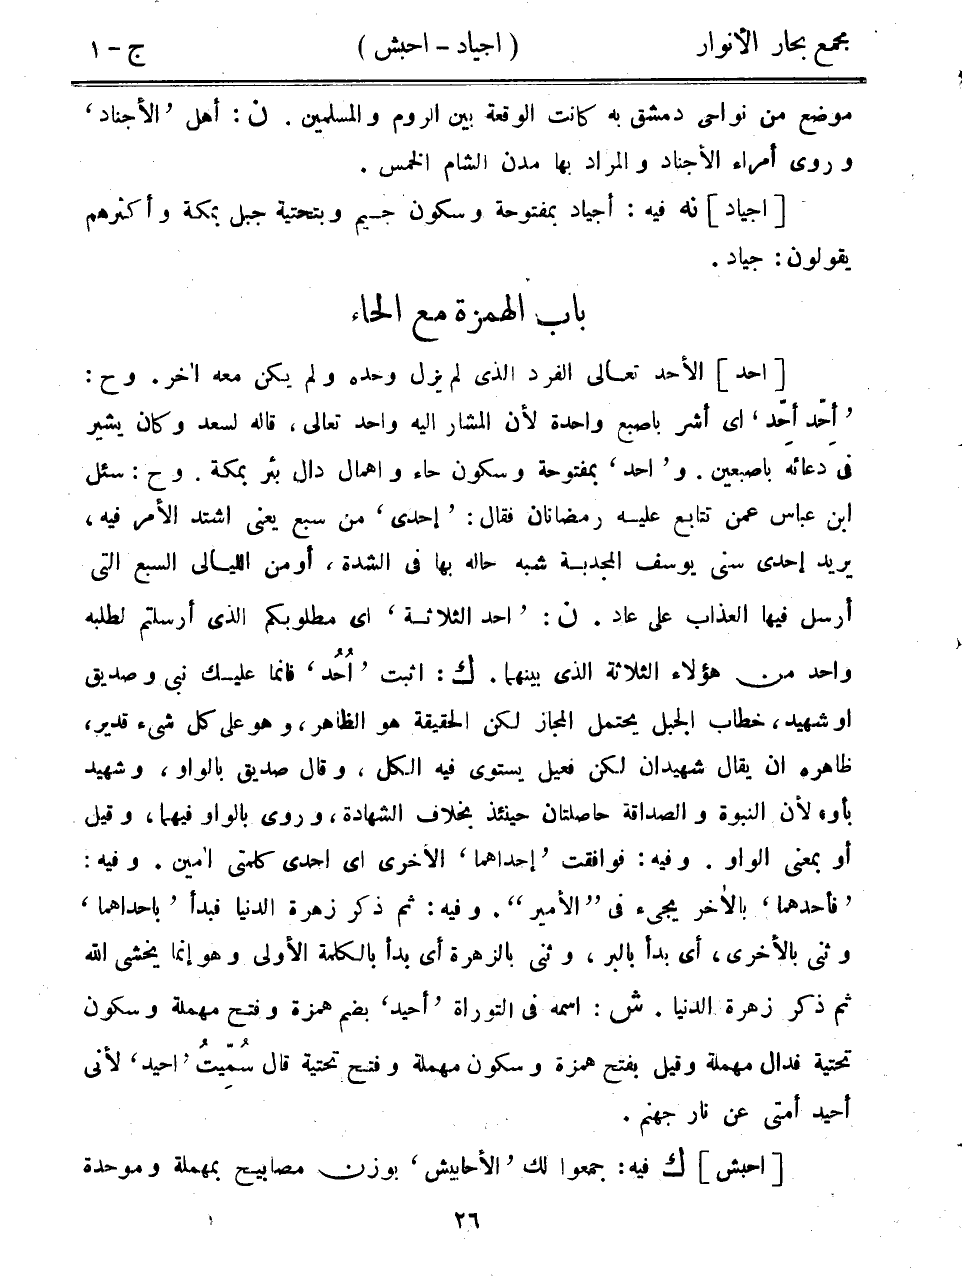 مجمع بحار الأنوار (اجياد - احبش) ج-١
موضع من نواحى دمشق به كانت الوقعة بين الروم و المسلمين . ن : أهل ’الأجناد‘
و روى أمراء الأجناد و المراد بها مدن الشام الخمس .
[ اجياد ] نه فيه : أجياد بمفتوحة و سكون جيم و بتحتية جبل بمكة و أكثرهم
يقولون : جياد .
باب الهمزة مع الحاء
[ احد ] الأحد تعالى الفرد الذى لم يزل وحده و لم يكن معه اٰخر . و ح :
’أَحِّد أَحِّد‘ اى أشر باصبع واحدة لأن المشار اليه واحد تعالى ، قاله لسعد و كان يشير
فى دعائه باصبعين . و ’احد‘ بمفتوحة و سكون حاء و اهمال دال بئر بمكة . و ح : سئل
ابن عباس عمن تتابع عليه رمضانان فقال : ’إحدى‘ من سبع يعنى اشتد الأمر فيه ،
يريد إحدى سنى يوسف المجدبة شبه حاله بها فى الشدة ، أو من الليالى السبع التى
أرسل فيها العذاب على عاد . ن : ’احد الثلاثة‘ اى مطلوبكم الذى أرسلتم لطلبه
واحد من هؤلاء الثلاثة الذى بينهما . ك : اثبت ’أُحُد‘ فانما عليك نبى و صديق
او شهيد ، خطاب الجبل يحتمل المجاز لكن الحقيقة هو الظاهر ، و هو على كل شىء قدير ،
ظاهره ان يقال شهيدان لكن فعيل يستوى فيه الكل ، و قال صديق بالواو ، و شهيد
بأو ، لأن النبوة و الصداقة حاصلتان حينئذ بخلاف الشهادة ، و روى بالواو فيهما ، و قيل
أو بمعنى الواو . و فيه : فوافقت ’إحداهما‘ الأخرى اى احدى كلمتى اٰمين . و فيه :
’فأحدهما‘ بالاٰخر يجىء فى ”الأمير“ . و فيه : ثم ذكر زهرة الدنيا فبدأ ’باحداهما‘
و ثنى بالأخرى ، أى بدأ بالبر ، و ثنى بالزهرة أى بدأ بالكلمة الأولى و هو إنما يخشى الله
ثم ذكر زهرة الدنيا . ش : اسمه فى التوراة ’أحيد‘ بضم همزة و فتح مهملة و سكون
تحتية فدال مهملة و قيل بفتح همزة و سكون مهملة و فتح تحتية قال سُمِّيتُ ’احيد‘ لأنى
أحيد أمتى عن نار جهنم .
[ احبش ] ك فيه : جمعوا لك ’الأحابيش‘ بوزن مصابيح بمهملة و موحدة
٢٦